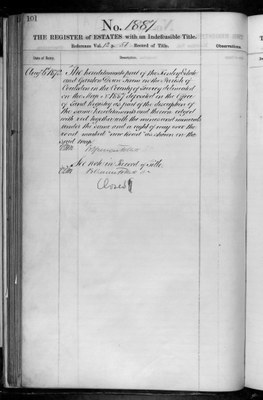 101
No. 1557
THE REGISTER of ESTATES with an Indefeasible Title.
Reference Vol. 12 p. 58. Record of Title.
Date of Entry.
Description.
Observations.
The hereditaments part of the Kenley Estate
and Garston Down Farm in the Parish of
Coulsdon in the County of Surrey delineated
on the Map No. 1557 deposited in the Office
of Land Registry as part of the description of
the same hereditaments and thereon edged
with red together with the mines and minerals
under the same and a right of way over the
road marked "new Road" as shown on the
said map.
See note in Record of Title.
Closed